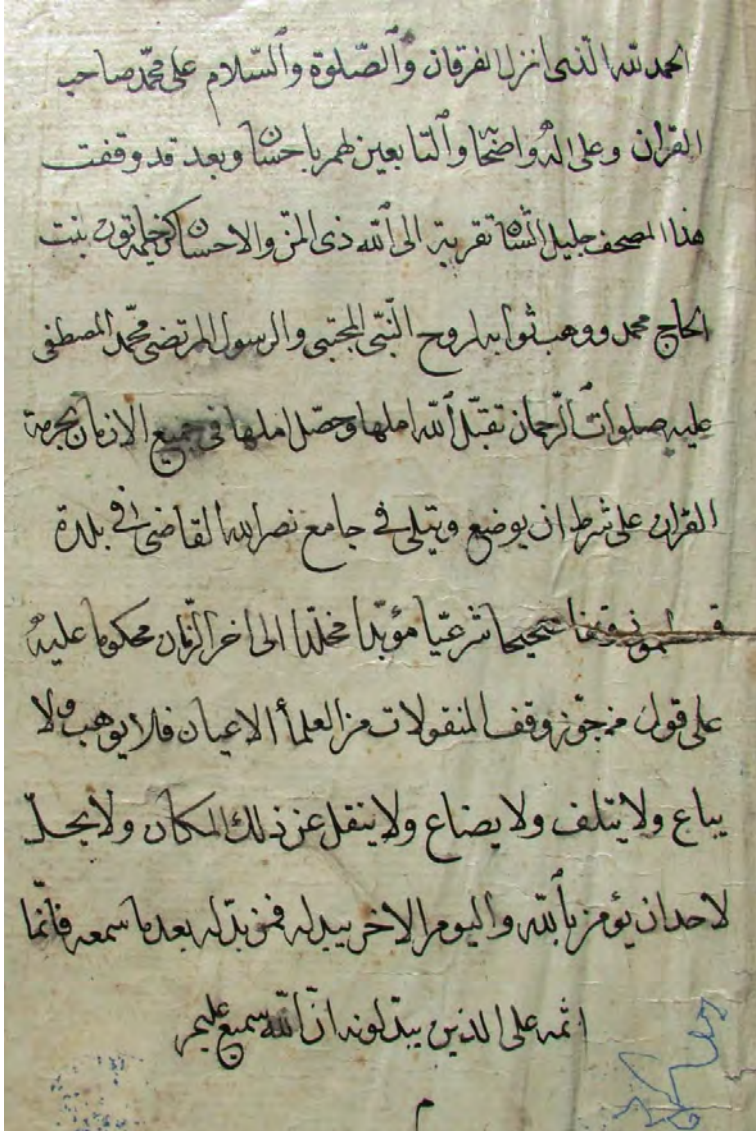 الحمد لله الّذى انزل الفرقان وٱلصّلوة وٱلسّلام على محمّد صاحب
القران وعلى اله واصحابه وٱلتابعين لهم باحسان وبعد قد وقفت
هذا المصحف جليل الشان تقربة الى ٱللّه ذى المنّ والاحسان خاتون بنت
الحاج محمد ووهب ثوابه لروح النّبىّ المجتبى والرسول المرتضى محمّد المصطفى
عليه صلوات ٱلرّحمان تقبّل ٱللّه املها وحصّل املها فى جميع الازمان بحرمة
القران على شرط ان يوضع ويتلى فى جامع نصر الله القاضى فى بلدة
قسطمونى وقفا صحيحا شرعيّا مؤبّدا مخلّدا الى اخر الزّمان محكوما عليه
على قول من جوّز وقف المنقولات من العلمأ الاعيان فلا يوهب ولا
يباع ولا يتلف ولا يضاع ولا ينقل عن ذلك المكان ولا يحلّ
لاحد ان يؤمن بٱللّه واليوم الاخر يبدله فمن بدّله بعد ما سمعه فانّما
اثمه على الذين يبدّلونه انّ ٱللّه سميع عليم
م